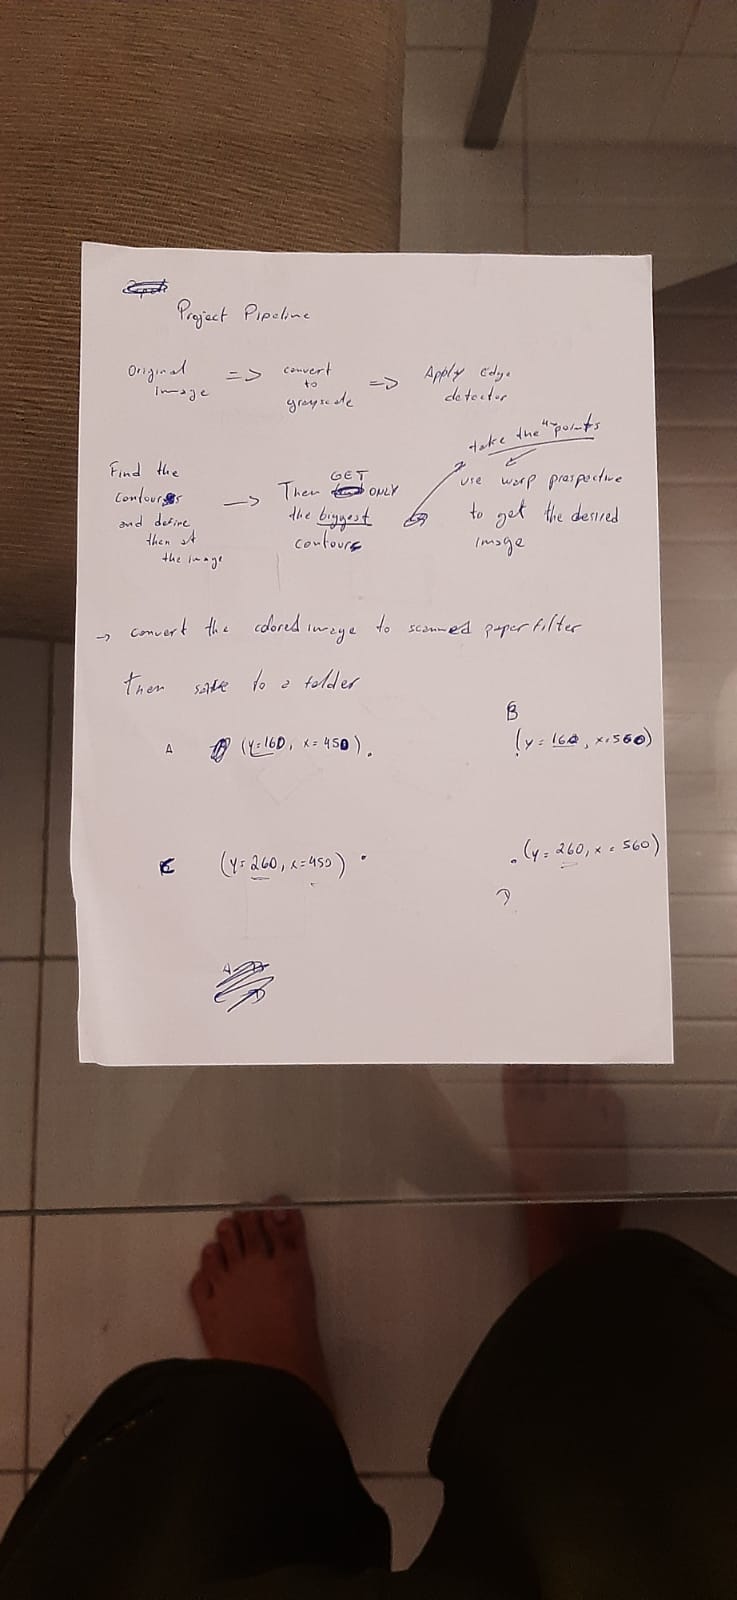 Project Pipeline
Original
image
=>
convert
to
grayscale
=>
Apply Edge
detector
Find the
contours
and define
then at
the image
->
GET
Then ONLY
the biggest
contours
take the "4" points
use warp prespective
to get the desired
image
-> convert the colored image to scanned paper filter
Then save to a folder
A (y=160, x=450).
B
(y=160, x=560)
C (y=260, x=450) .
.(y=260, x=560)
D